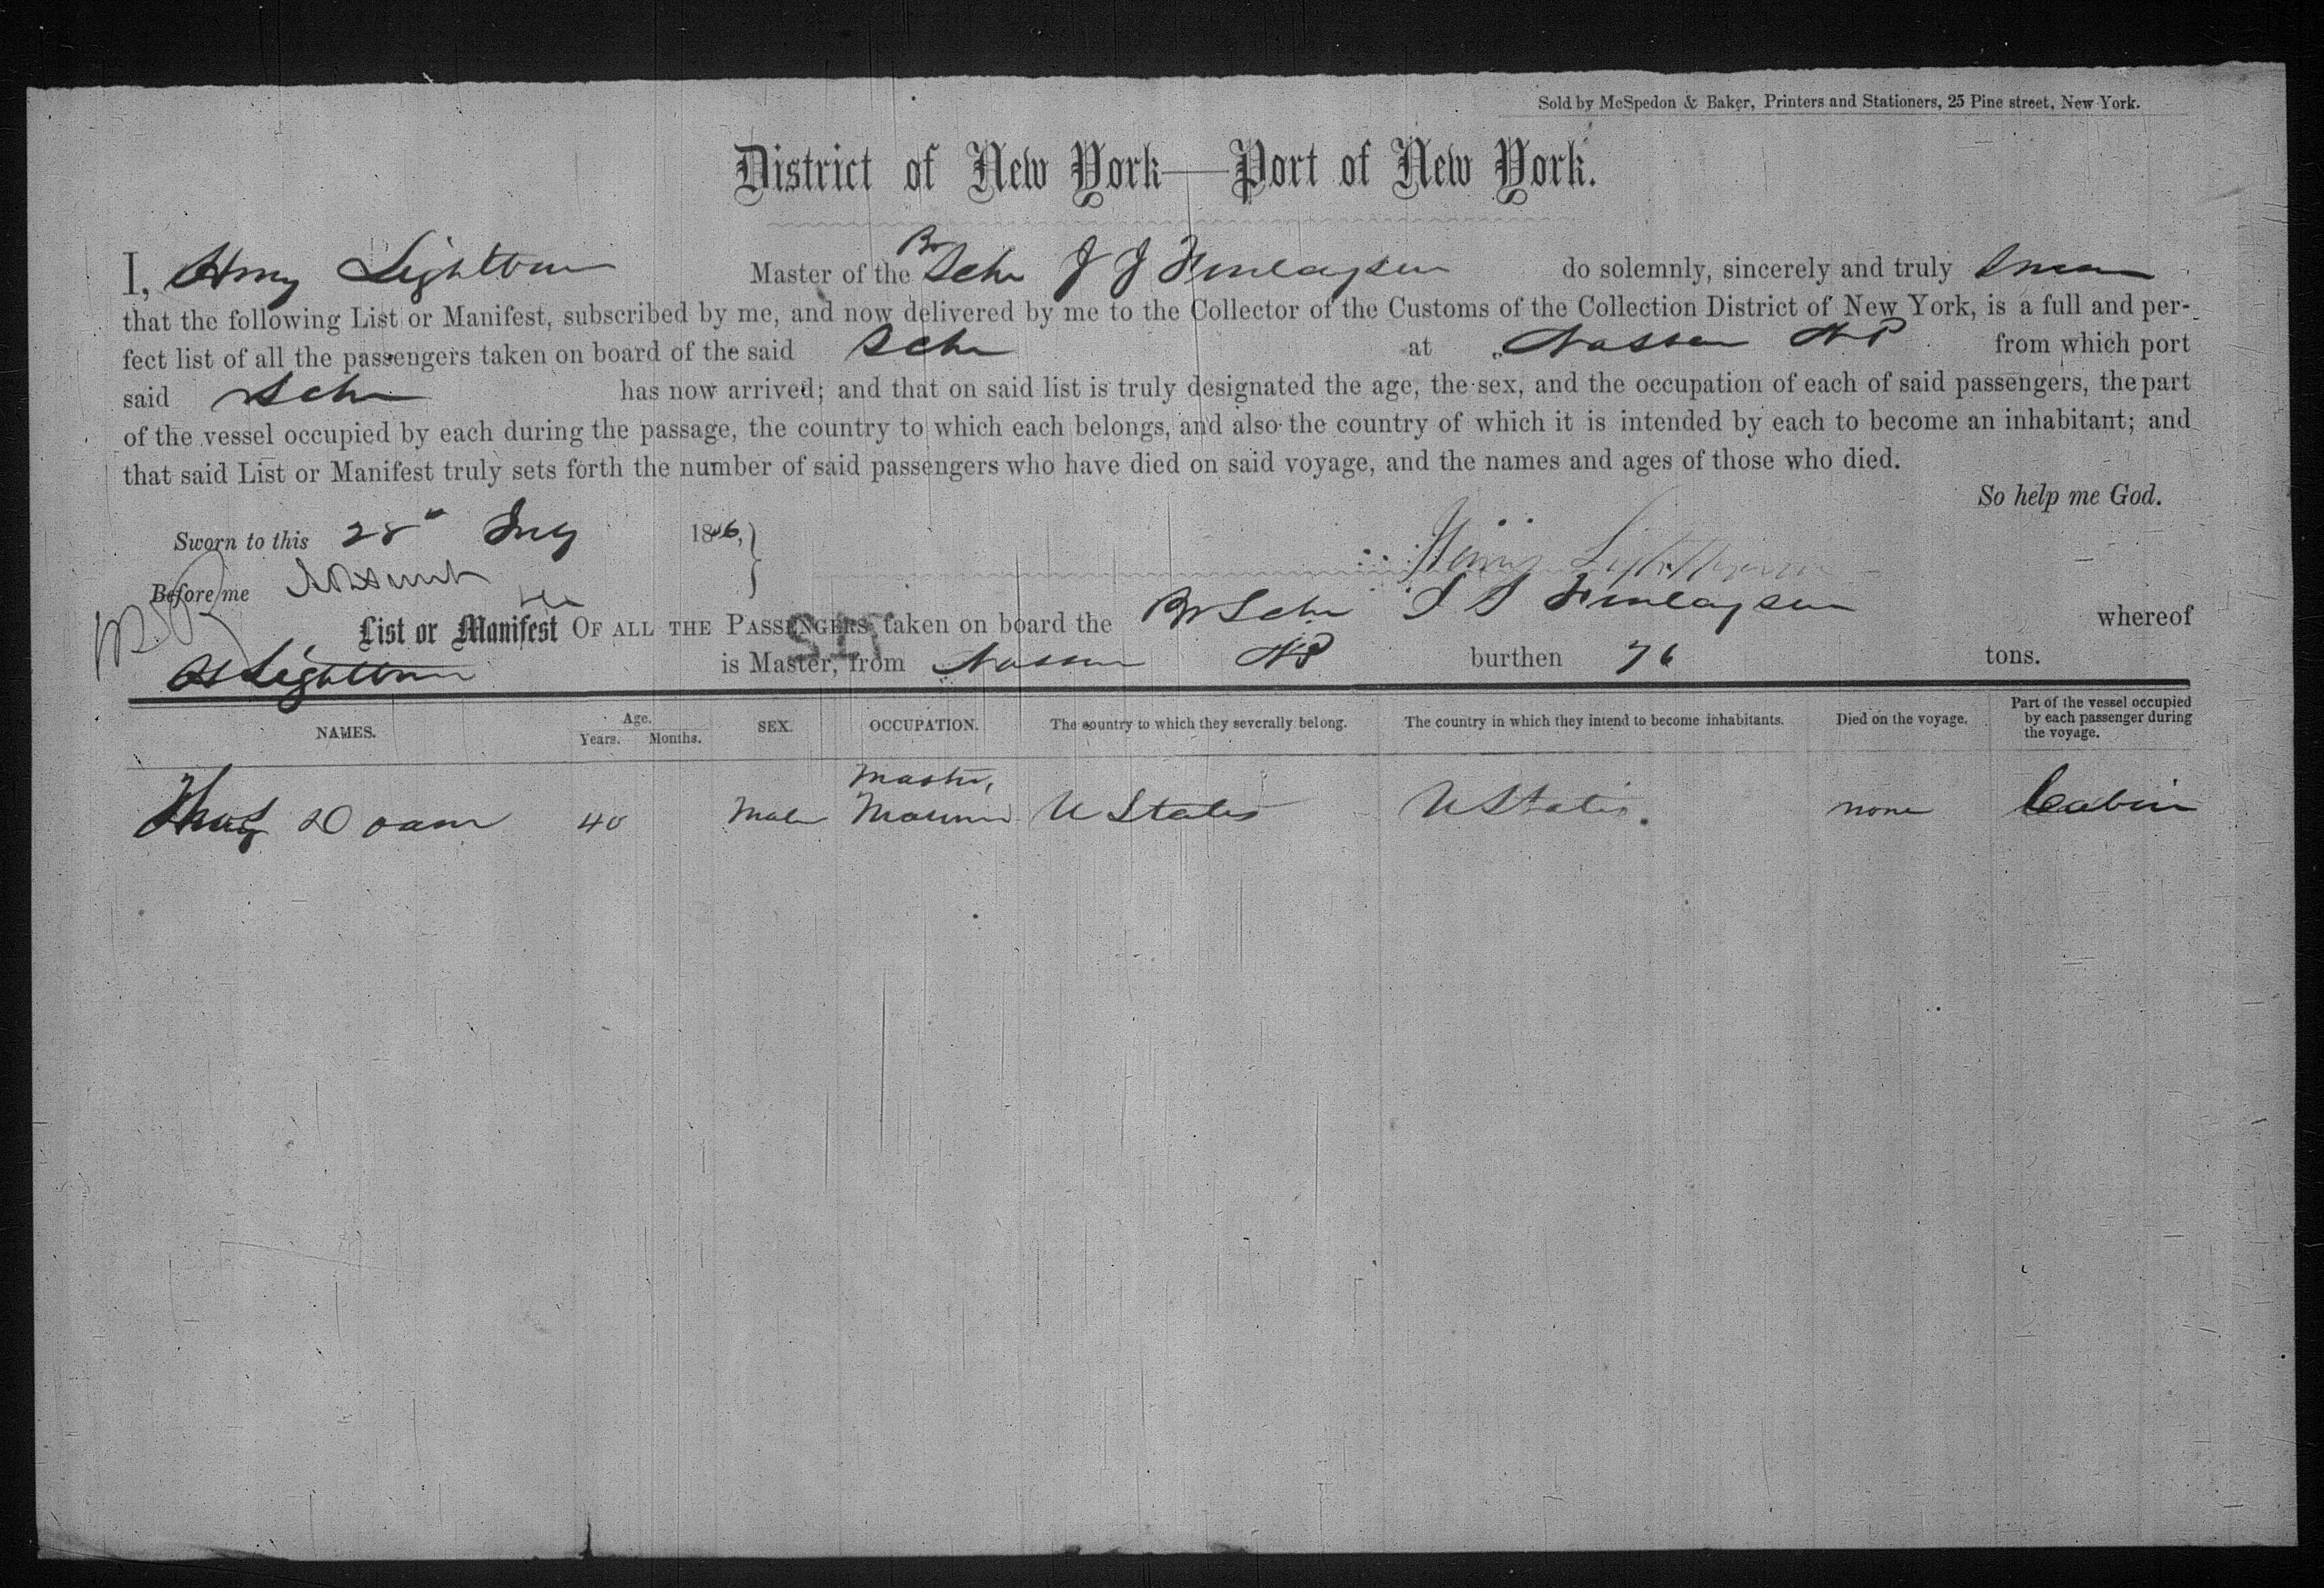 Sold by McSpedon & Baker, Printers and Stationers, 25 Pine street, New York.
District of New York—Port of New York.
I, Henry Lightbourn Master of the Br Schr J J Finlayson do solemnly, sincerely and truly Swear
that the following List or Manifest, subscribed by me, and now delivered by me to the Collector of the Customs of the Collection District of New York, is a full and per-
fect list of all the passengers taken on board of the said Schr at Nassau N P from which port
said Schr has now arrived; and that on said list is truly designated the age, the sex, and the occupation of each of said passengers, the part
of the vessel occupied by each during the passage, the country to which each belongs, and also the country of which it is intended by each to become an inhabitant; and
that said List or Manifest truly sets forth the number of said passengers who have died on said voyage, and the names and ages of those who died.
So help me God.
Sworn to this 28" 18
Henry Lightbourn
Before me
List or Manifest OF ALL THE PASSENGERS taken on board the Br Schr J J Finlayson whereof
H Lightbourn is Master, from Nassau N P burthen 76 tons.
NAMES. Age. Years. Months. SEX. OCCUPATION. The country to which they severally belong. The country in which they intend to become inhabitants. Died on the voyage. Part of the vessel occupied by each passenger during the voyage.
40 Male Master Mariner U States U States none Cabin